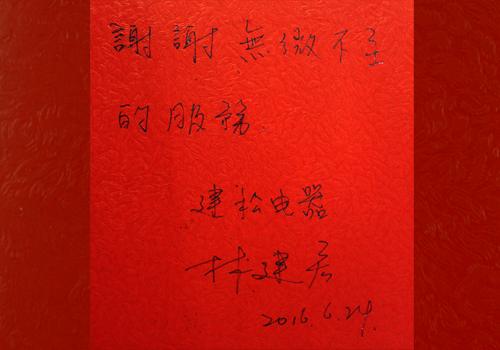 謝謝無微不至
的服務.
建松电器
林建君
2016.6.24.